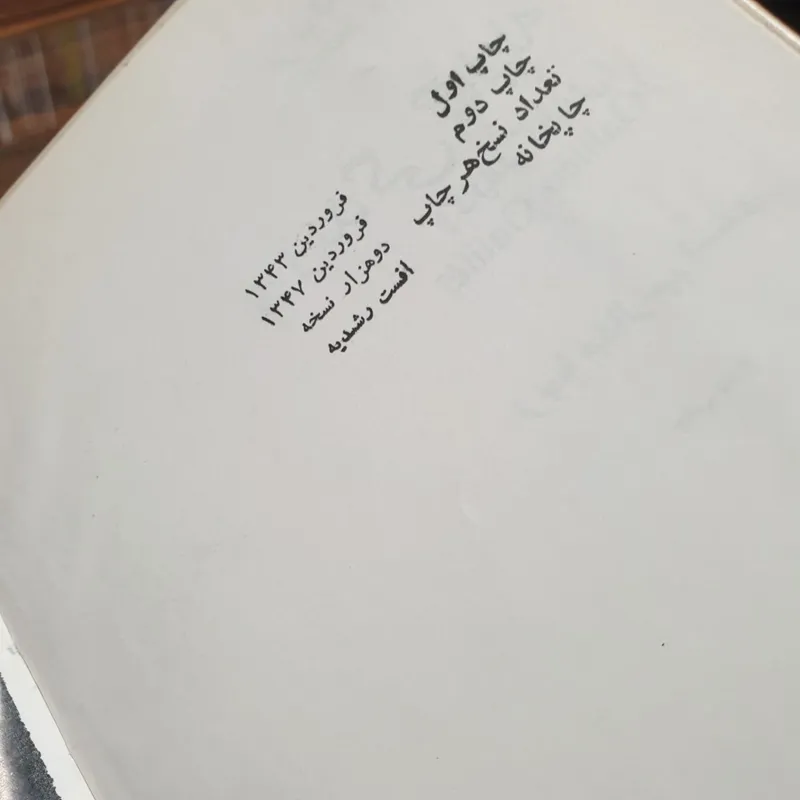 چاپ اول فروردین ۱۳۴۳
چاپ دوم فروردین ۱۳۴۷
تعداد نسخ هر چاپ دوهزار نسخه
چاپخانه افست رشدیه